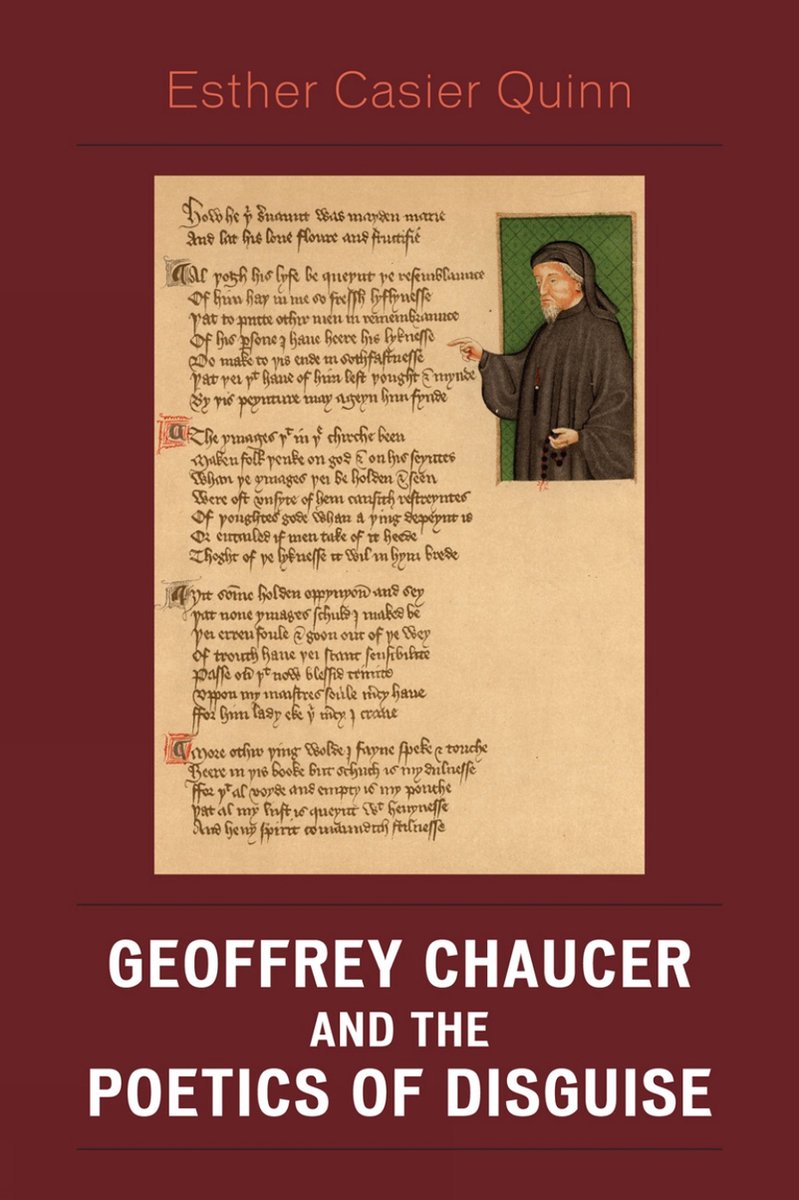 Esther Casier Quinn
How he þͥ s̄uaunt was mayden marie
And lat his loue floure and fructifie
Al þogh his lyfe be queynt þe resemblaunce
Of him haþ in me so fressh lyflynesse
Þat to putte othir men in remembraunce
Of his ꝑsone I haue heere his lyknesse
Do make to þis ende in sothfastnesse
Þat þei þͭ haue of him lest þought & mynde
By þis peynture may ageyn him fynde
The ymages þͭ in þͤ chirche been
Maken folk þenke on god & on his seyntes
Whan þe ymages þei be holden & seen
Were oft vnsyte of hem causith restreyntes
Of þoughtes gode whan a þing depeynt is
Or entailed if men take of it heede
Thoght of þe lyknesse it wil in hym brede
Yit some holden oppynyoū and sey
Þat none ymages schuld I maked be
Þei erren foule & goon out of þe wey
Of trouth haue þei scant sensibilite
Passe ou̅ þͭ now blessid trinite
Vppon my maistres soule m̄cy haue
ffor him lady eke þͥ m̄cy I craue
More othir þing wolde I fayne speke & touche
Heere in þis booke but schuch is my dulnesse
ffor þͭ al voyde and empty is my pouche
Þat al my lust is queynt wͭ heuynesse
And heuy spirit comaundith stilnesse
GEOFFREY CHAUCER
AND THE
POETICS OF DISGUISE